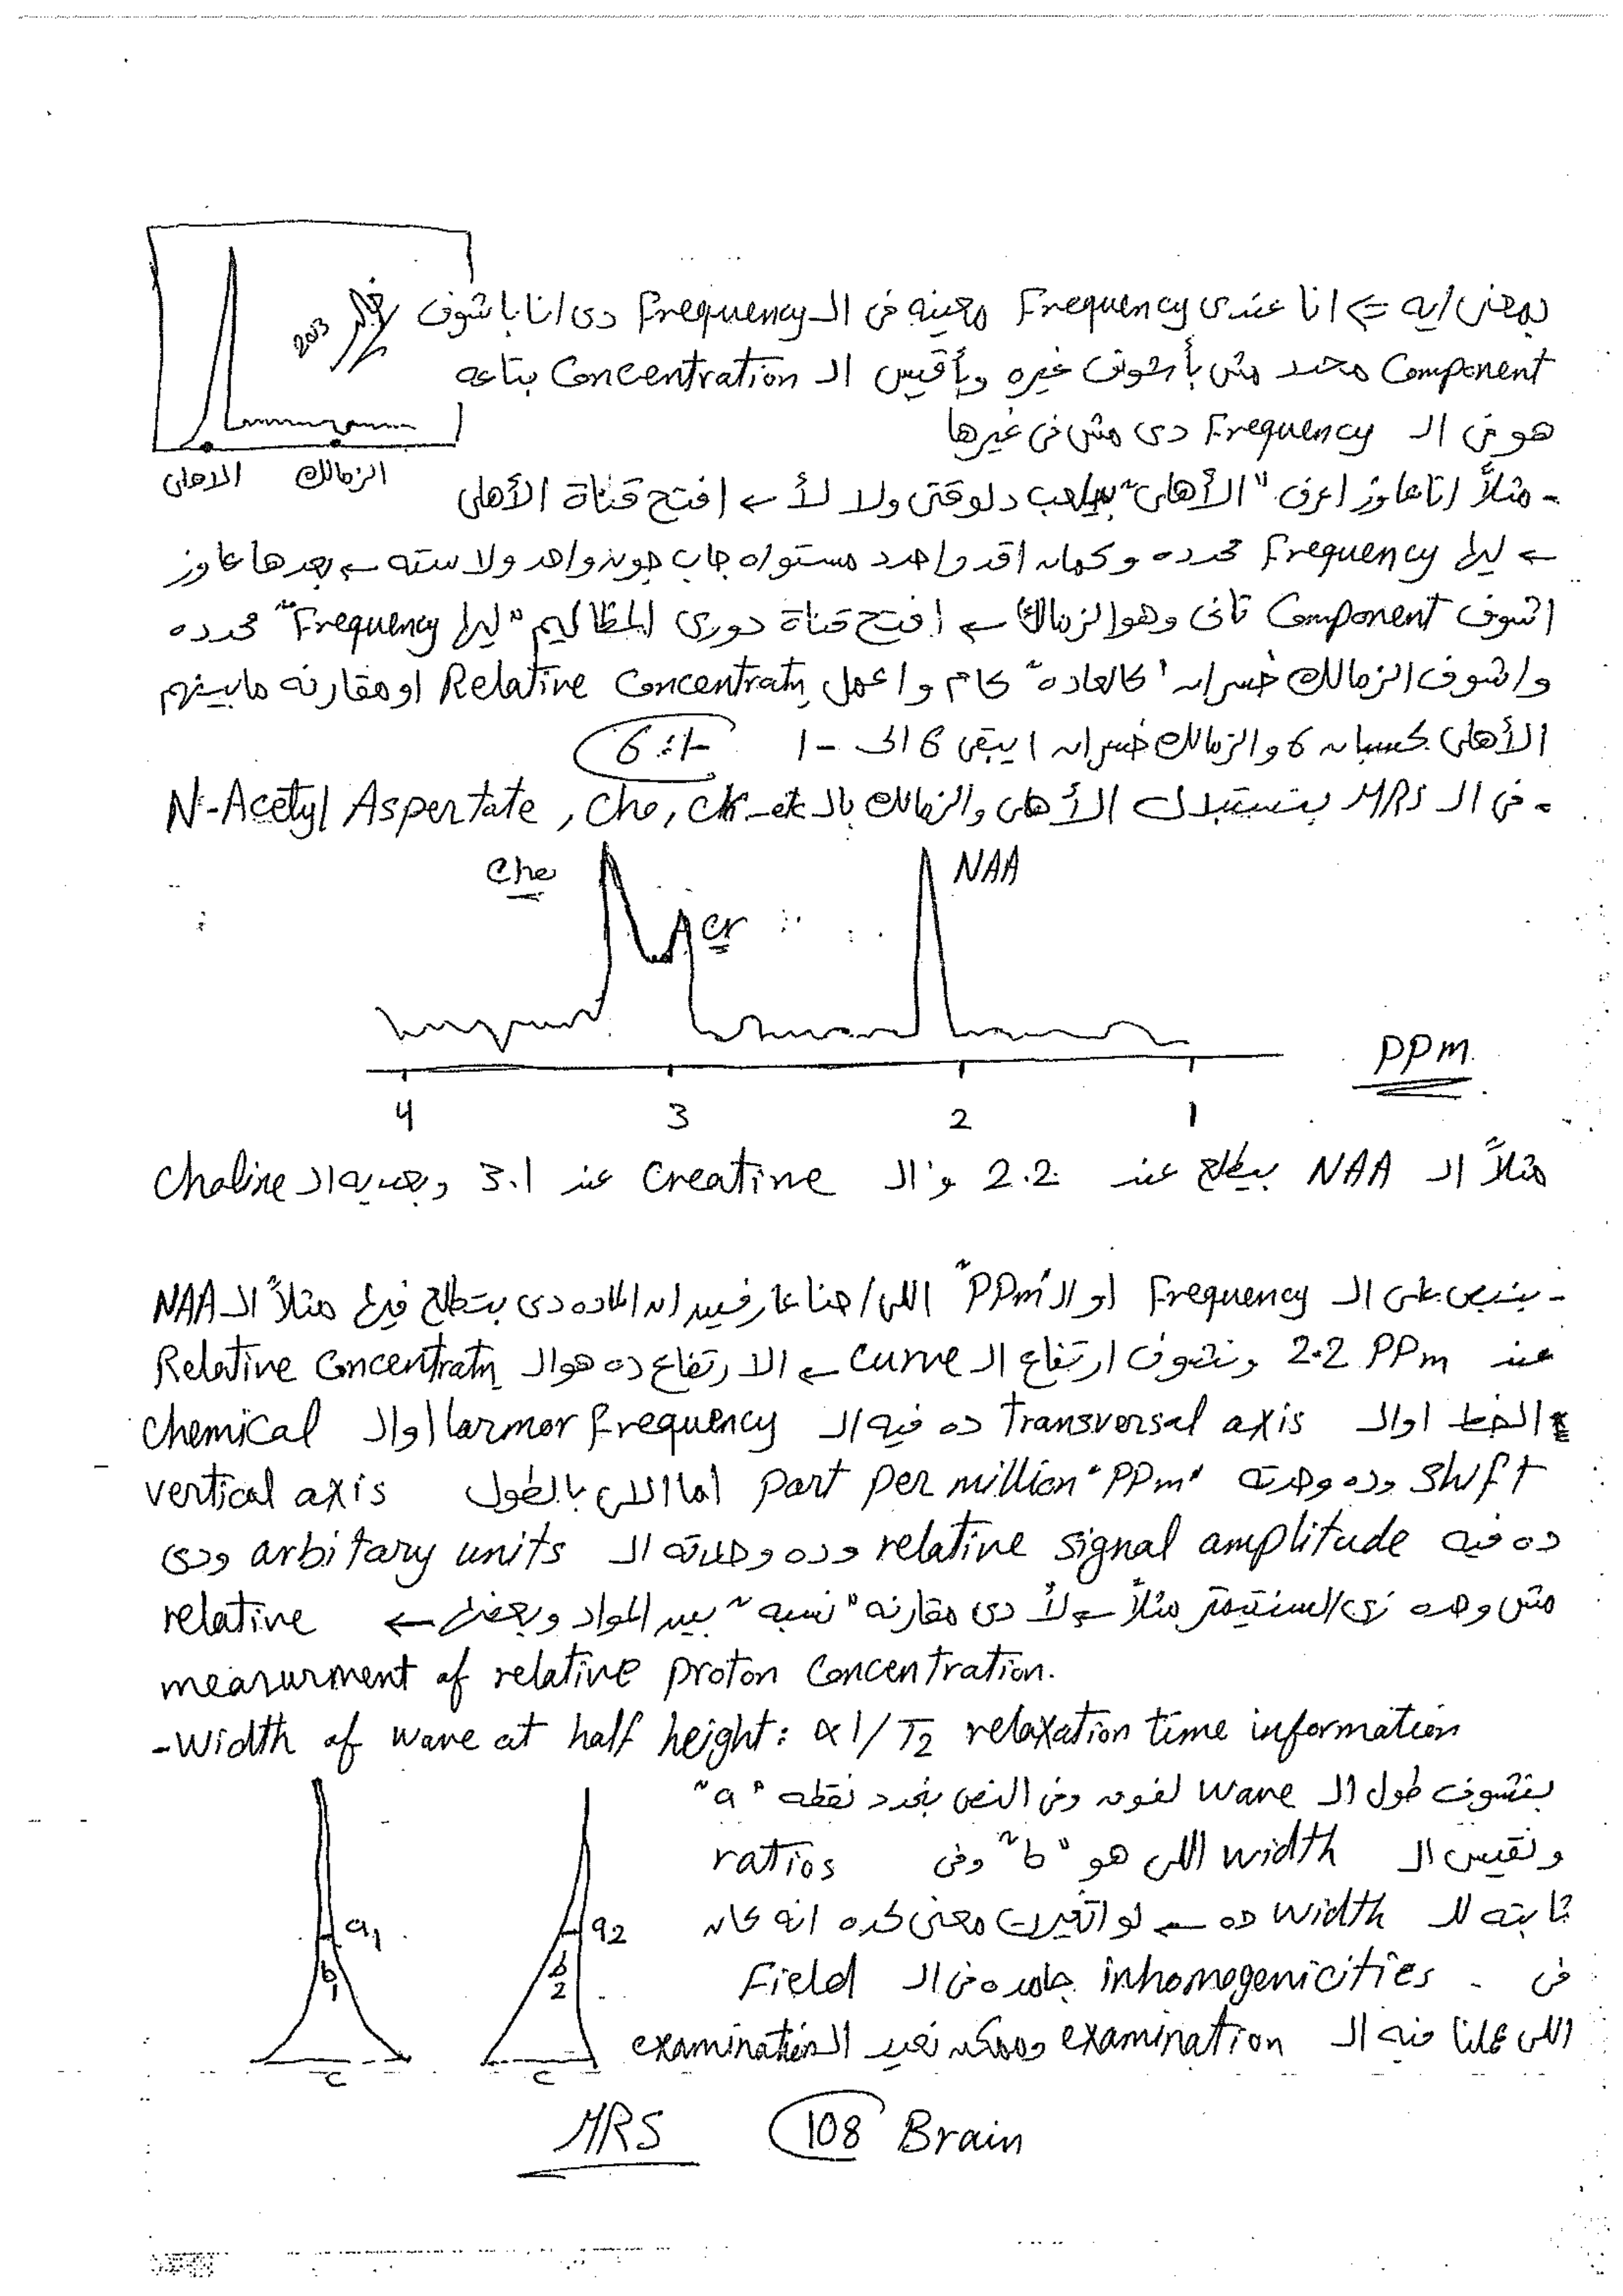 بمعنى ايه ⇐ انا عندى Frequency معينه فى الـ Frequency دى انا باشوف
Component محدد مش بأشوف غيره وبأقيس الـ Concentration بتاعه
هو فى الـ Frequency دى مش فى غيرها
2013
الاهلى الزمالك
- مثلاً انا عاوز اعرف "الأهلى" بيلعب دلوقتى ولا لأ ← افتح قناة الأهلى
← ليها Frequency محدده وكمان اقدر احدد مستواه جاب جون واحد ولا سته ← بعدها عاوز
اشوف Component تانى وهو الزمالك ← افتح قناة دورى المظاليم "ليها Frequency" محدده
واشوف الزمالك خسران "كالعاده" كام واعمل Relative Concentratn او مقارنه مابينهم
الأهلى كسبان 6 والزمالك خسران 1 يبقى 6 الى -1 6:1-
- فى الـ MRS بنستبدل الأهلى والزمالك بالـ N-Acetyl Aspertate, Cho, CK - etc
Cho
Cr
NAA
4 3 2 1
PPm
مثلاً الـ NAA بيطلع عند 2.2 و الـ Creatine عند 3.1 وبعديه الـ Choline
- بنبص على الـ Frequency او الـ "PPm" اللى احنا عارفين ان الماده دى بتطلع فيها مثلاً الـ NAA
عند 2.2 PPm ونشوف ارتفاع الـ Curve ← الارتفاع ده هو الـ Relative Concentratn
الخط او الـ Transversal axis ده فيه الـ larmor frequency او الـ Chemical
Shift وده وحدته "PPm" part per million اما اللى بالطول vertical axis
ده فيه relative signal amplitude وده وحدته الـ arbitary units ودى
مش وحده زى السنتيمتر مثلاً ← لأ دى مقارنه "نسبه" بين المواد وبعضها ← relative
measurment of relative proton Concentration.
-Width of wave at half height: ∝ 1/T2 relaxation time information
بنشوف طول الـ Wave لفوق وفى النص بنحدد نقطه "a"
ونقيس الـ width اللى هو "b" وفى ratios
ثابته للـ width ده ← لو اتغيرت معنى كده انه كان
فى inhomogenicities جامده فى الـ Field
اللى عملنا فيه الـ examination وممكن نعيد الـ examination
a1
b1
c
a2
b2
c
MRS 108 Brain